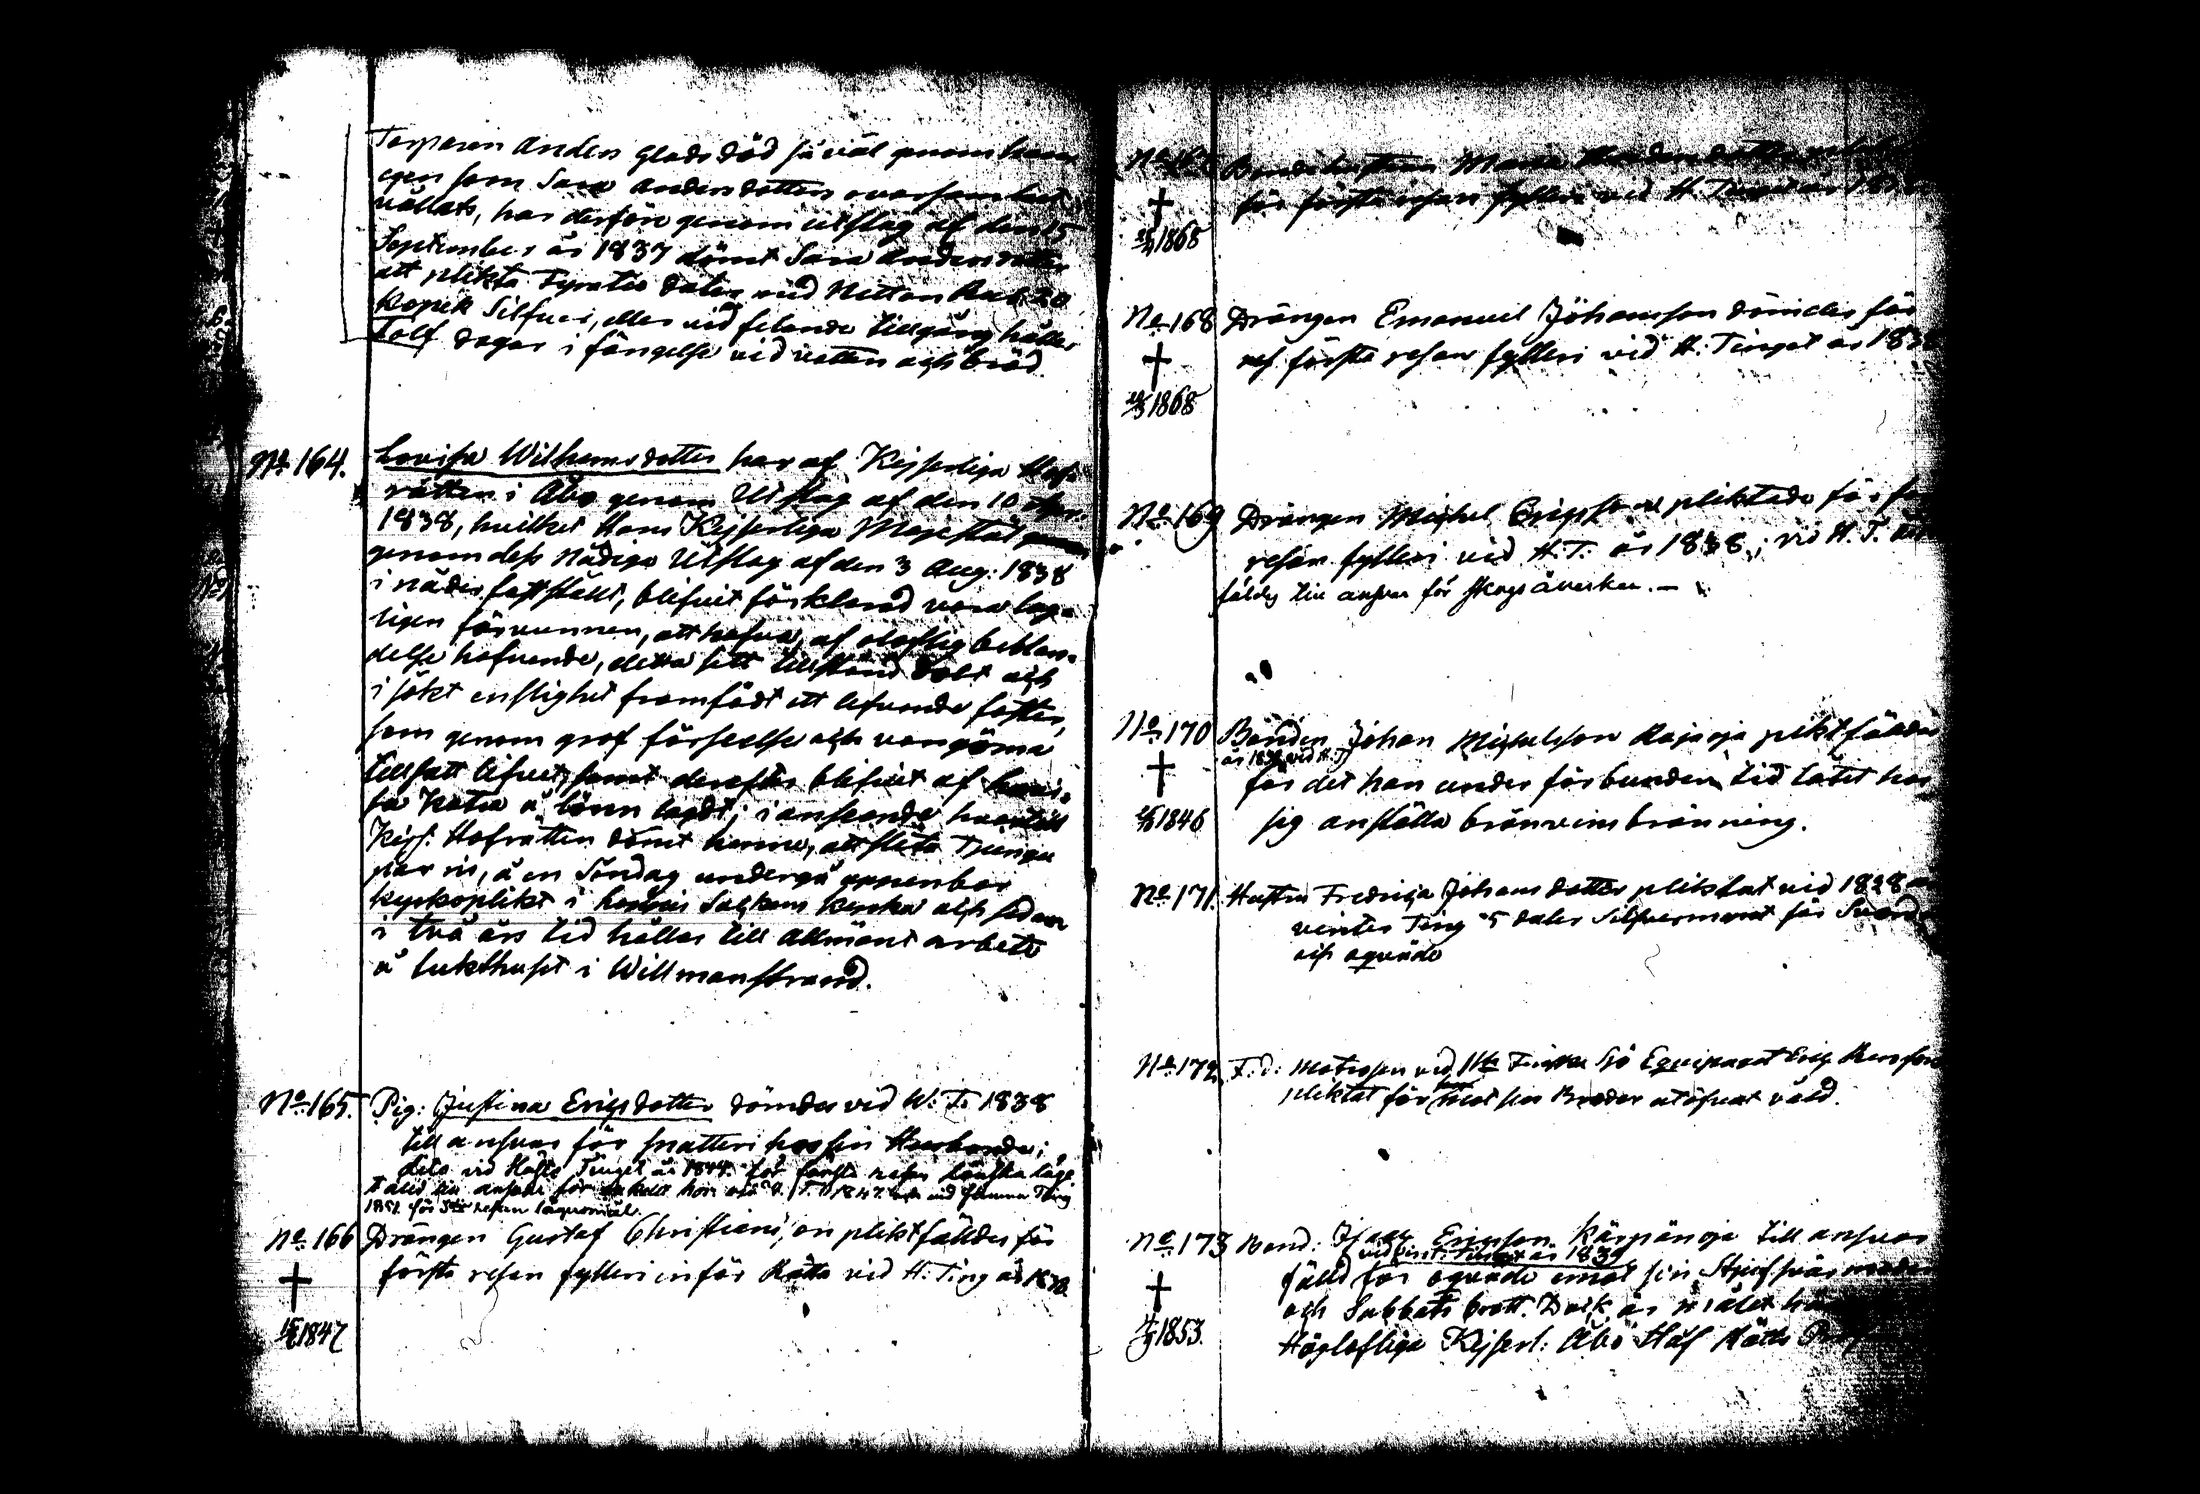 Torparen Anders Glads död så väl genom
egen som Sara Andersdotters ovarsamhet
vållats, har derföre genom utslag af den 15
September år 1837 dömt Sara Andersdotter
att plikta Fyratio daler med Nitton Rub. 20
Kopek Silfver, eller vid felande tillgång håller
Tolf dagar i fängelse vid vatten och bröd.
No. 164. Lovisa Wilhemsdotter har af Kejserliga Hof-
rätten i Åbo genom Utslag af den 10
1838, hvilket Hans Kejserliga Majestät
genom dess Nådiga Utslag af den 3 Aug: 1838
i nåder fastställt, blifvit förklarad vara lag-
ligen förvunnen, att hafva, af oloflig beblan-
delse hafvande, detta sitt tillstånd dolt och
i sökt enslighet framfödt ett lefvande foster,
som genom grof förseelse och vangöma
tillsatt lifvet, samt derefter blifvit af
å lönn lagdt; i anseende hvartill
Kejs. Hofrätten dömt henne, att slita Tjugu
par ris, å en Söndag undergå uppenbar
kyrkoplikt i Sockens kyrka och sedan
i två års tid hållas till allmänt arbete
å tukthuset i Willmanstrand.
No. 165. Pig: Justina Ericsdotter dömdes vid W: T. 1838
till ansvar för snatteri hos sin Husbonde;
dito vid Höste Tinget år 1844 för första resan Lönskaläge
1851. för resan lägersmål.
No. 166 Drängen Gustaf Christians, en pliktfälldes för
första resan fylleri inför Rätta vid H. Ting år 1838
† 1847
No. 167 Bondehustrun Maria
för första resan fylleri vid H. Tinget år
† 1868
No. 168 Drängen Emanuel Johansson dömdes för
första resan fylleri vid H. Tinget år 1838
† 1868
No. 169 Drängen Michel Ericsson pliktade för
resan fylleri vid H.T. år 1838; vid H. T.
fäldes till ansvar för skogsåverkan. —
No. 170 Bonden Johan Michelsson Rajaoja pliktfäldes
år vid H. T.
för det han under förbunden tid låtit hos
† 1846 sig anställa bränvinsbränning.
No. 171. Hustru Fredrica Johansdotter pliktat vid 1838
vinter Ting 5 daler Silfvermynt för
och oqväde
No. 172. F. d. Matrosen vid 1sta Finska Sjö Equipaget Eric
pliktat för mot sin Broder utöfvat våld.
No. 173 Bond: Isaac Ericsson Kärpänoja till ansvar
vid vint: Tinget år 1839
fälld för oqväde emot sin Styfsvärmoder
och Sabbats brott. Dock är målet
† 1853. Höglofliga Kejserl: Åbo Hof Rätts